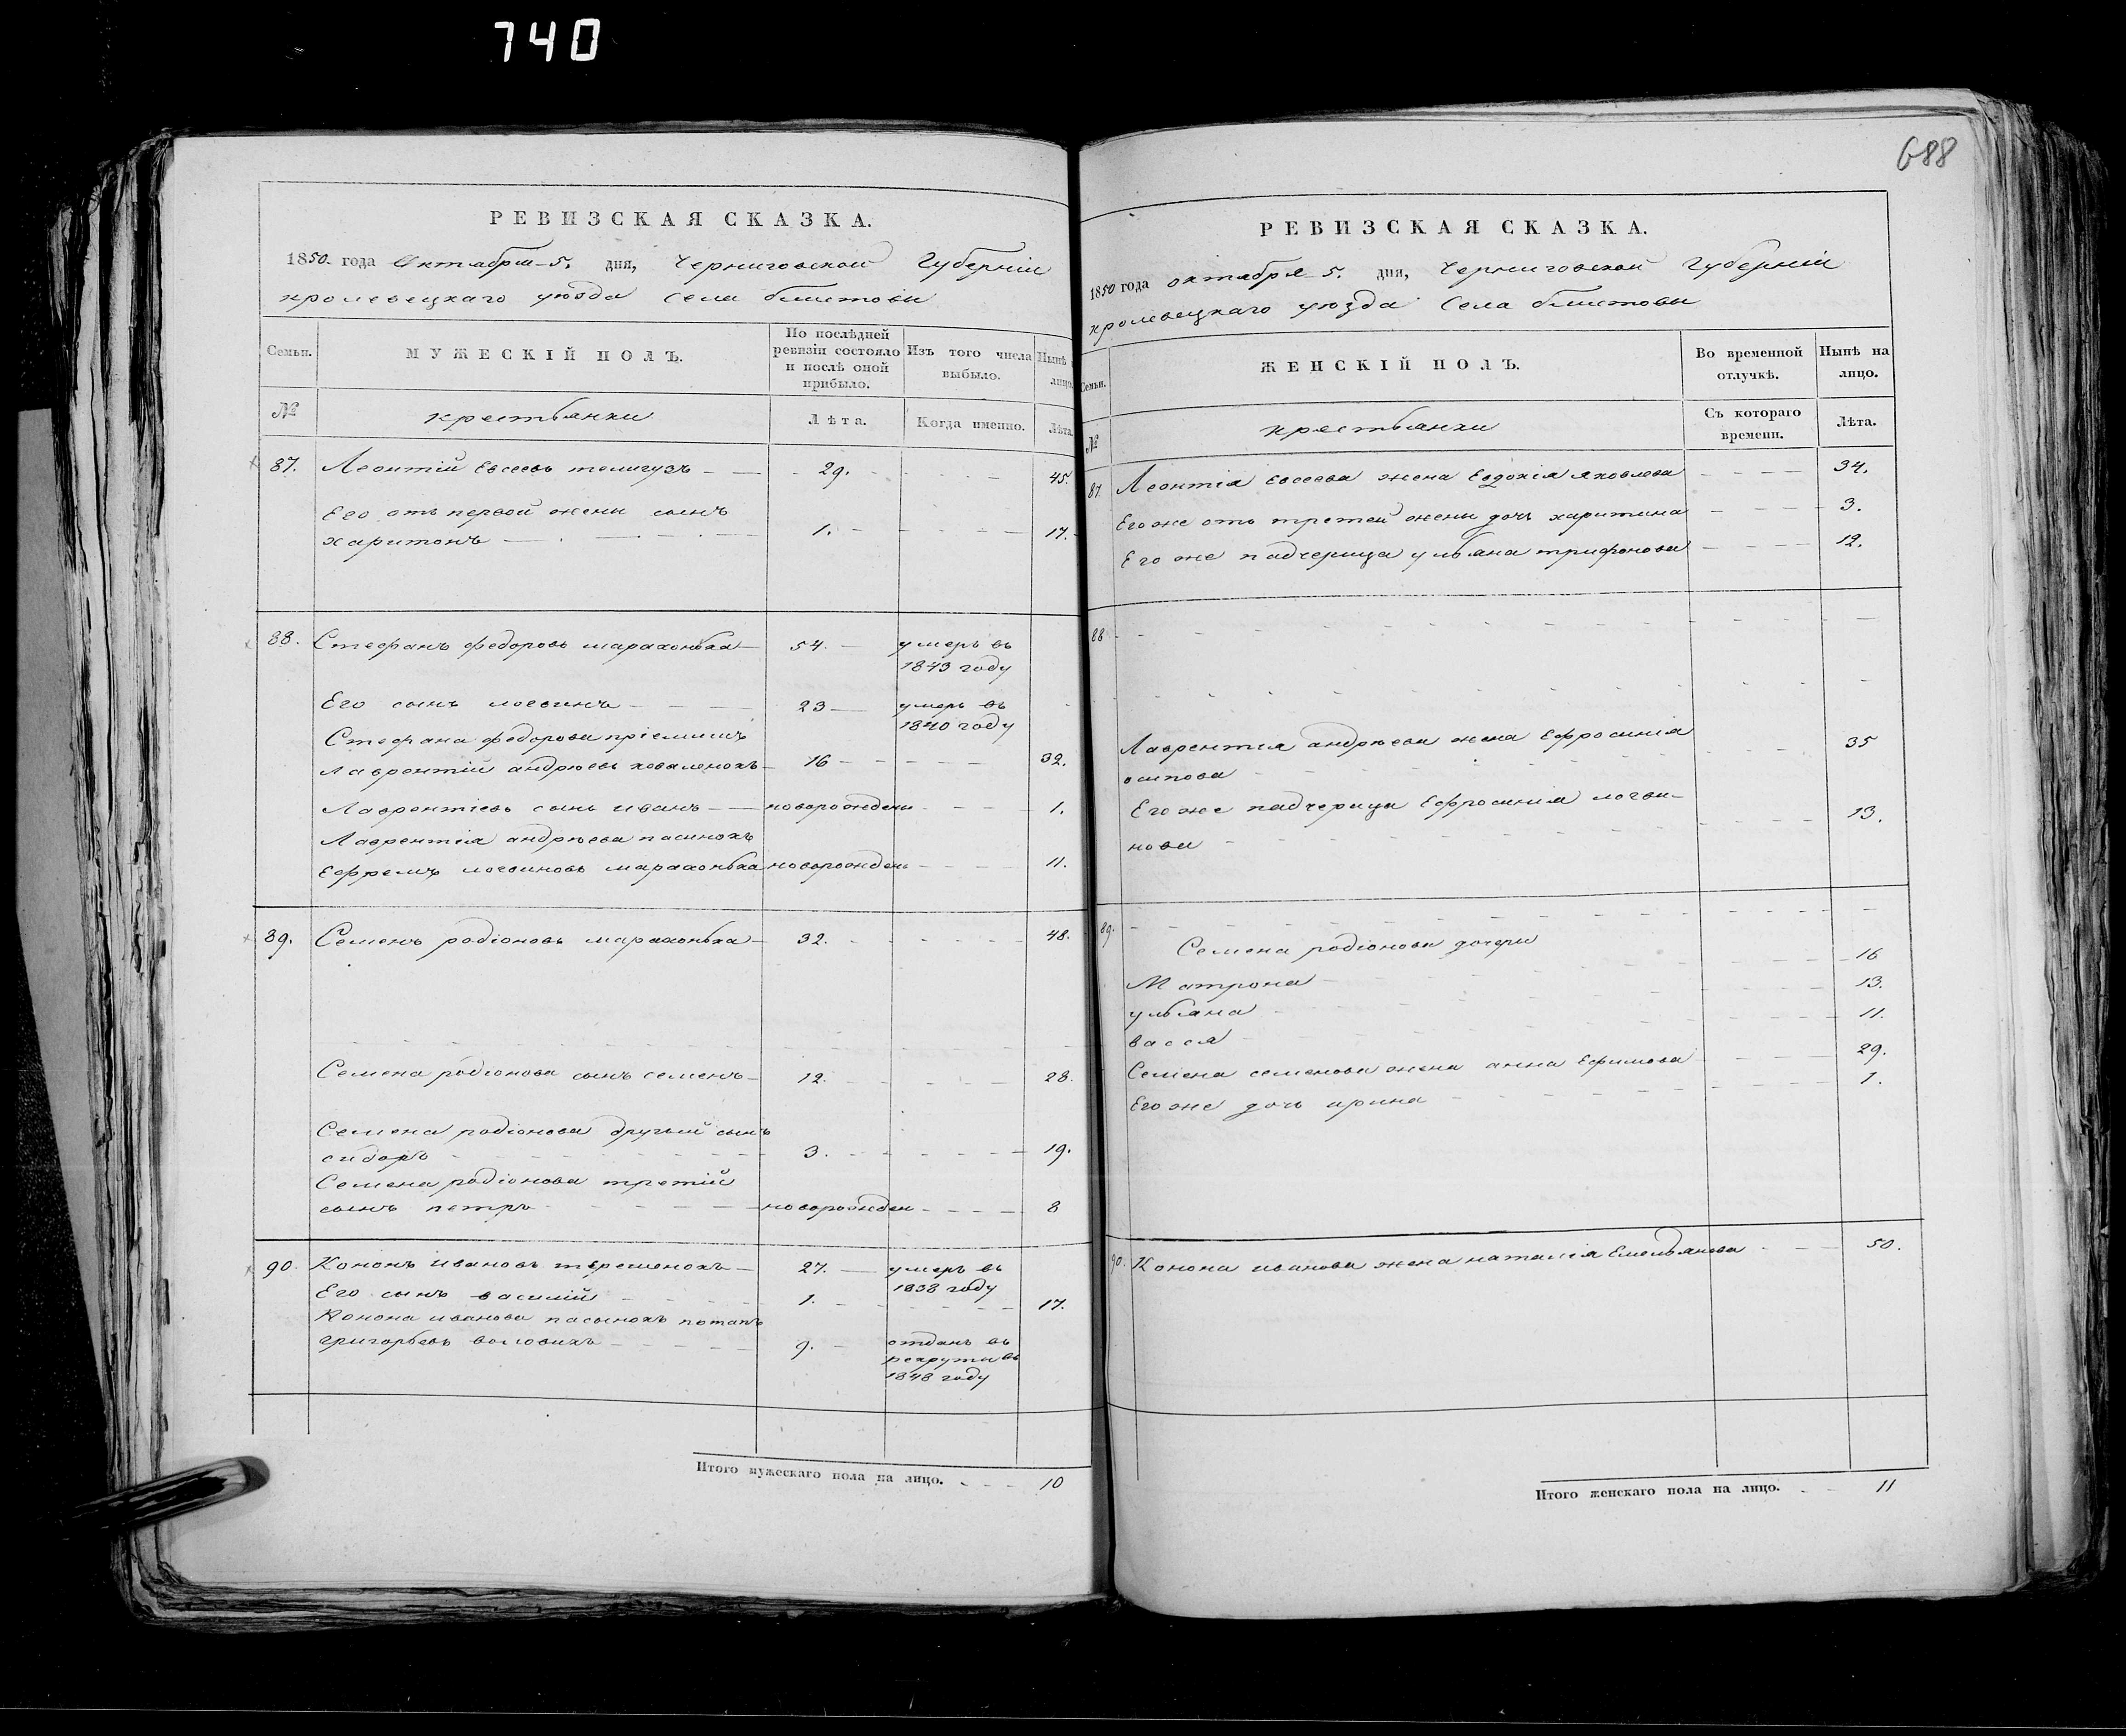 740
688
РЕВИЗСКАЯ СКАЗКА.
1850. года Октября 5. дня, Черниговской Губерніи
кролевецкаго уѣзда села блистовы
Семьи.
МУЖЕСКІЙ ПОЛЪ.
По послѣдней ревизіи состояло и послѣ оной прибыло.
Изъ того числа выбыло.
Нынѣ лицо.
№ крестьянки Лѣта. Когда именно. Лѣта.
87. Леонтій Евсеевъ телигузъ 29. 45.
Его отъ первой жены сынъ
харитонъ 1. 17.
88. Стефанъ федоровъ марахонька 54. умеръ въ
1843 году
Его сынъ логвинъ 23 умеръ въ
1840 году
Стефана федорова пріемишъ
лаврентій андрѣевъ коваленокъ 16 32.
Лаврентіевъ сынъ иванъ новорожденъ 1.
Лаврентія андрѣева пасинокъ
Ефремъ логвиновъ марахонька новорожденъ 11.
89. Семенъ родіоновъ марахонька 32. 48.
Семена родіонова сынъ семенъ 12. 28.
Семена родіонова другій сынъ
сидоръ 3. 19.
Семена родіонова третій
сынъ петръ новорожден 8
90. Кононъ ивановъ терешенокъ 27. умеръ въ
1838 году
Его сынъ василій 1. 17.
Конона иванова пасынокъ потапъ
григорьевъ 9. отданъ въ
рекруты въ
1848 году
Итого мужескаго пола на лицо. 10
РЕВИЗСКАЯ СКАЗКА.
1850 года октября 5. дня, Черниговской Губерніи
кролевецкаго уѣзда Села блистовы
Семьи.
ЖЕНСКІЙ ПОЛЪ.
Во временной отлучкѣ.
Нынѣ на лицо.
№ крестьянки Съ котораго времени. Лѣта.
87. Леонтія Евсеева жена Евдокія яковлева 34.
Его же отъ третей жены дочь харитина 3.
Его же падчерица ульяна трифонова 12.
88
Лаврентія андрѣева жена Ефросинія 35
осипова
Его же падчерица Ефросинія логви- 13.
нова
89.
Семена родіонова дочери
Матрона 16
ульяна 13.
васся 11.
Семена семенова жена анна Ефимова 29.
Его же дочь ирина 1.
90. Конона иванова жена наталія Емельянова 50.
Итого женскаго пола на лицо. 11